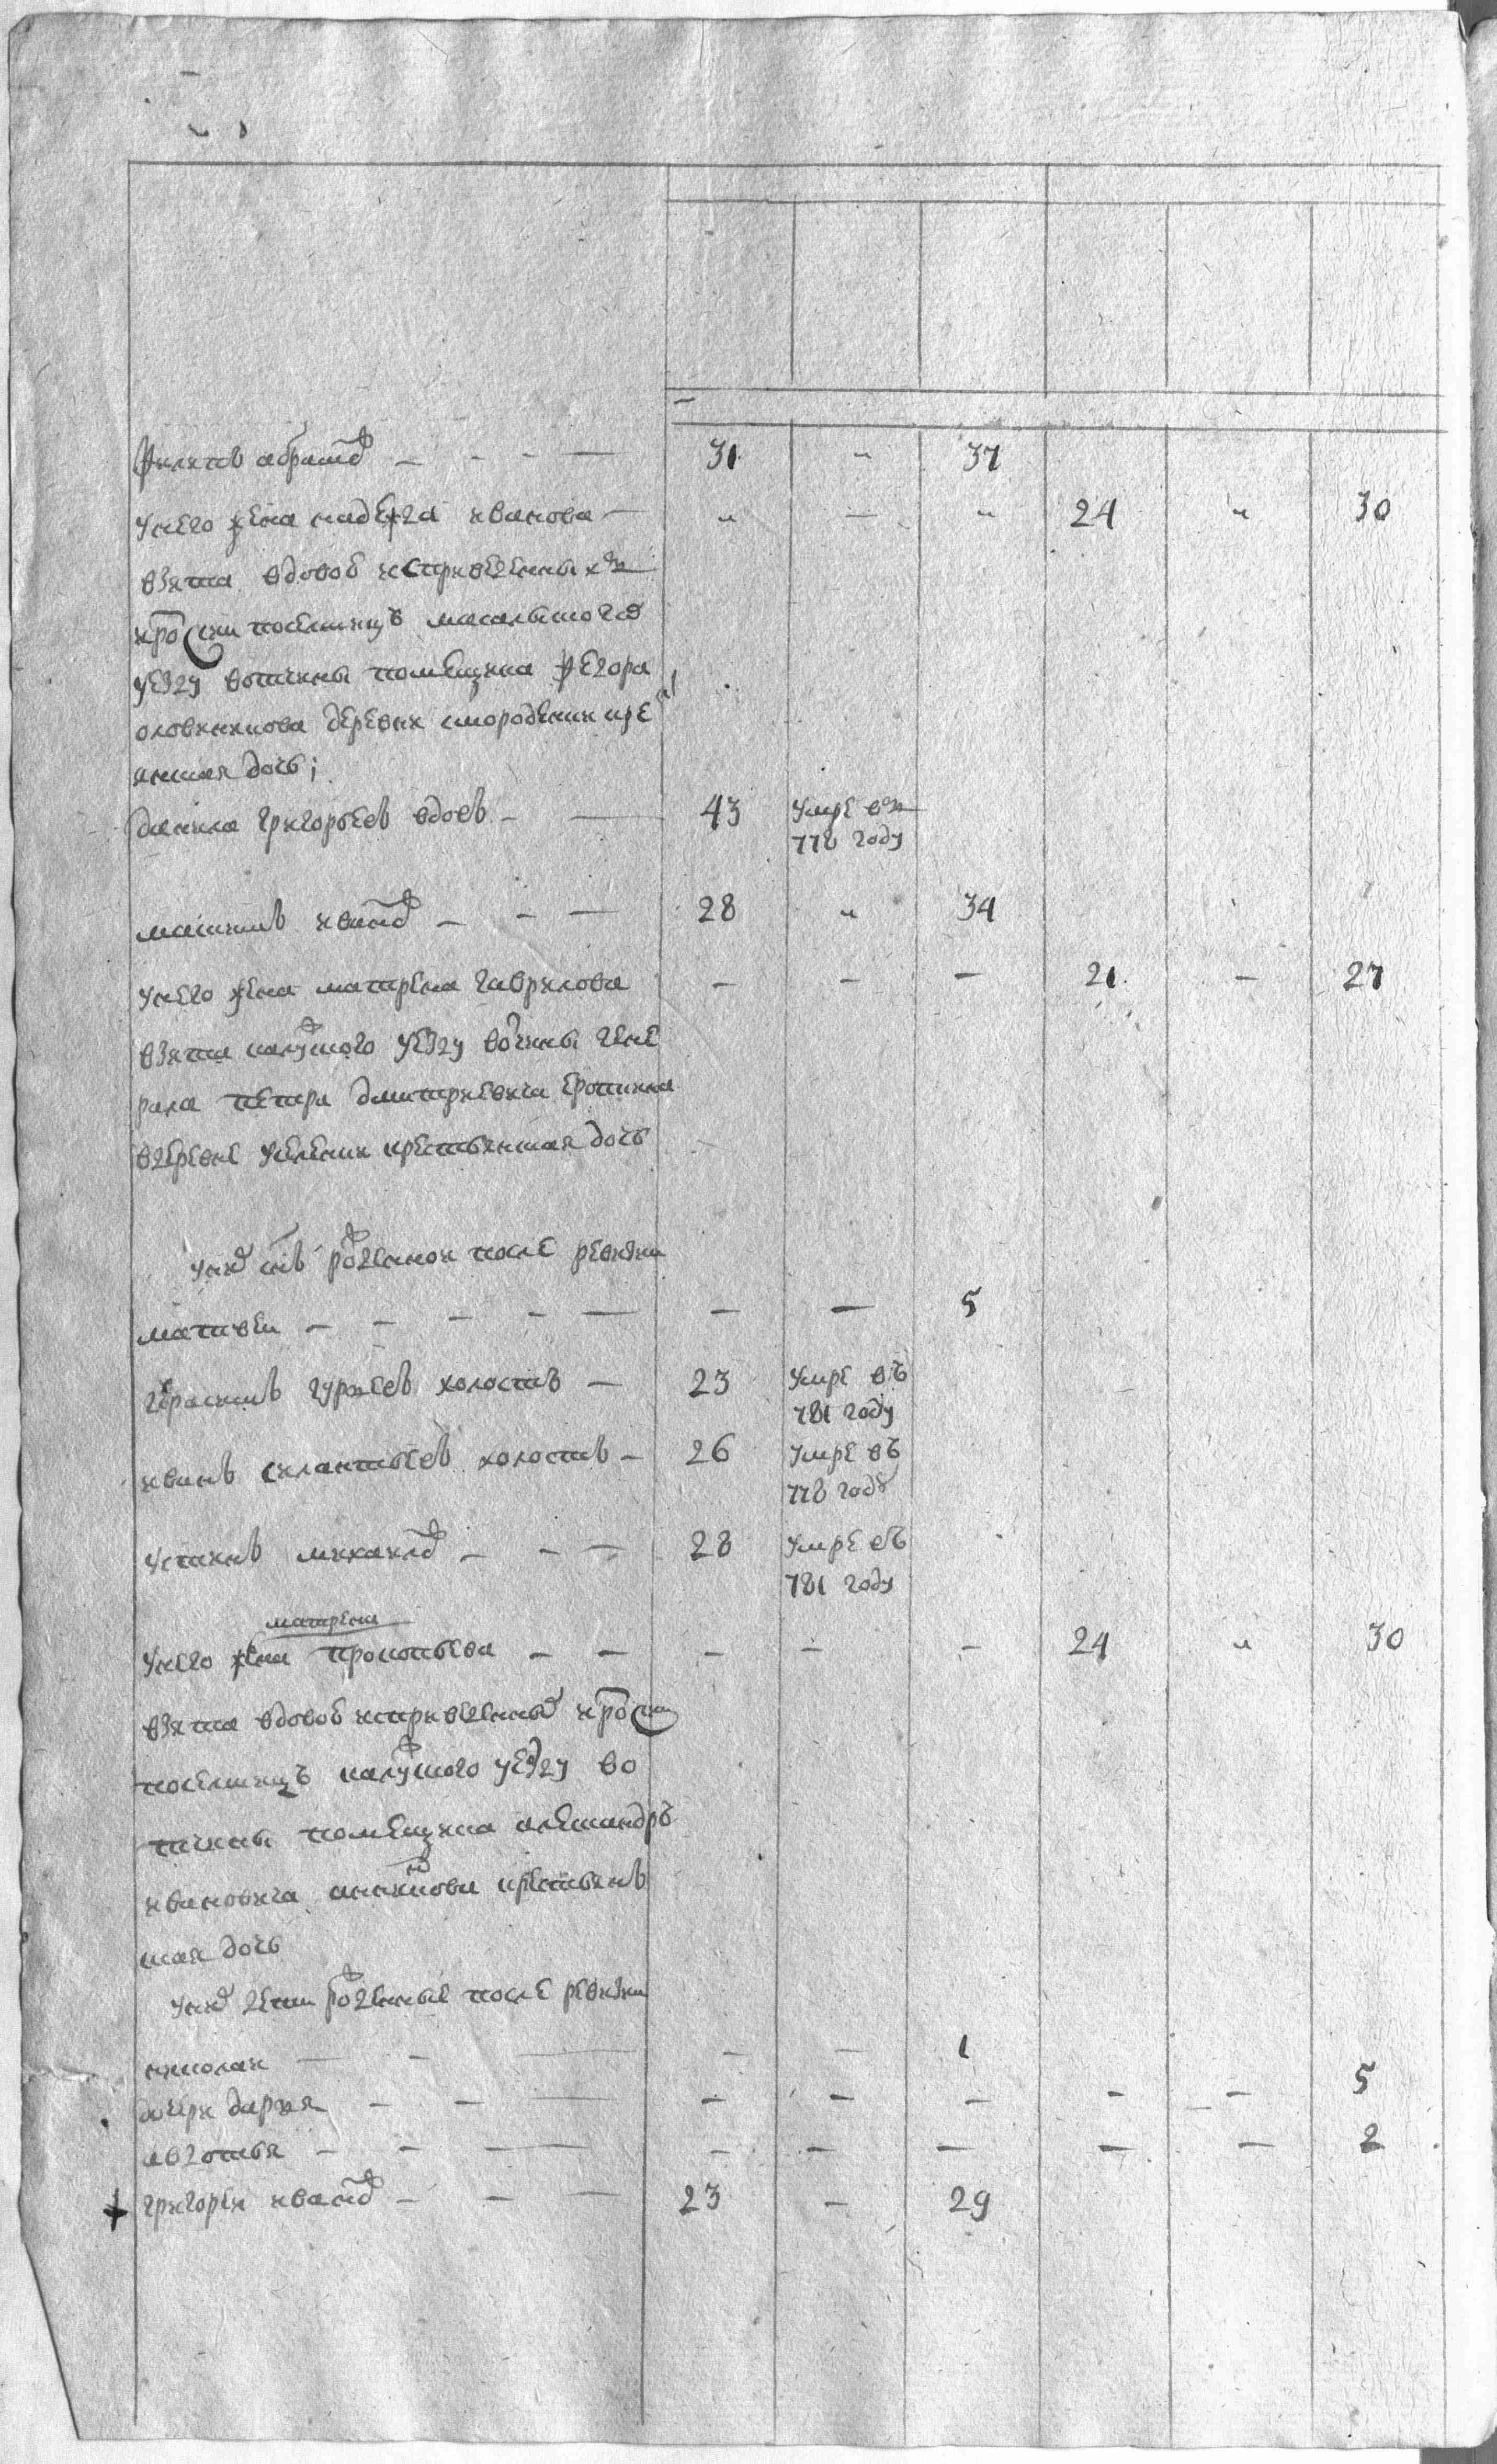 Филипъ абрамовъ — — — — 31 „ 37
унего жена надежда иванова — „ — „ 24 „ 30
взята вдовою исприведенныхъ
уезду вотчины помещика Федора
деревни смородинки кре
янская дочь;
данила григорьевъ вдовъ — — 43 умре въ
778 году
иванов — — — 28 „ 34
унего жена матрена гаврилова — — — 21 — 27
взята калужского уезду вотчины гене
рала петра дмитриевича еропкина
вдеревне крестьянская дочь
уних сынъ рожденной после ревизии
матвеи — — — — — — — 5
герасимъ гурьевъ холостъ — 23 умре въ
781 году
иванъ силантьевъ холостъ — 26 умре въ
778 году
устинъ михаилов — — — 28 умре въ
781 году
матрена
унего жена прокопьева — — — — — 24 „ 30
взята вдовою исприведенных
калужского уезду во
тчины помещика александръ
ивановича крестьянъ
ская дочь
уних дети рожденные после ревизии
николаи — — — — — 1
дочери дарья — — — — — — — — 5
авдотья — — — — — — — — — 2
григореи иванов — — — 23 — 29